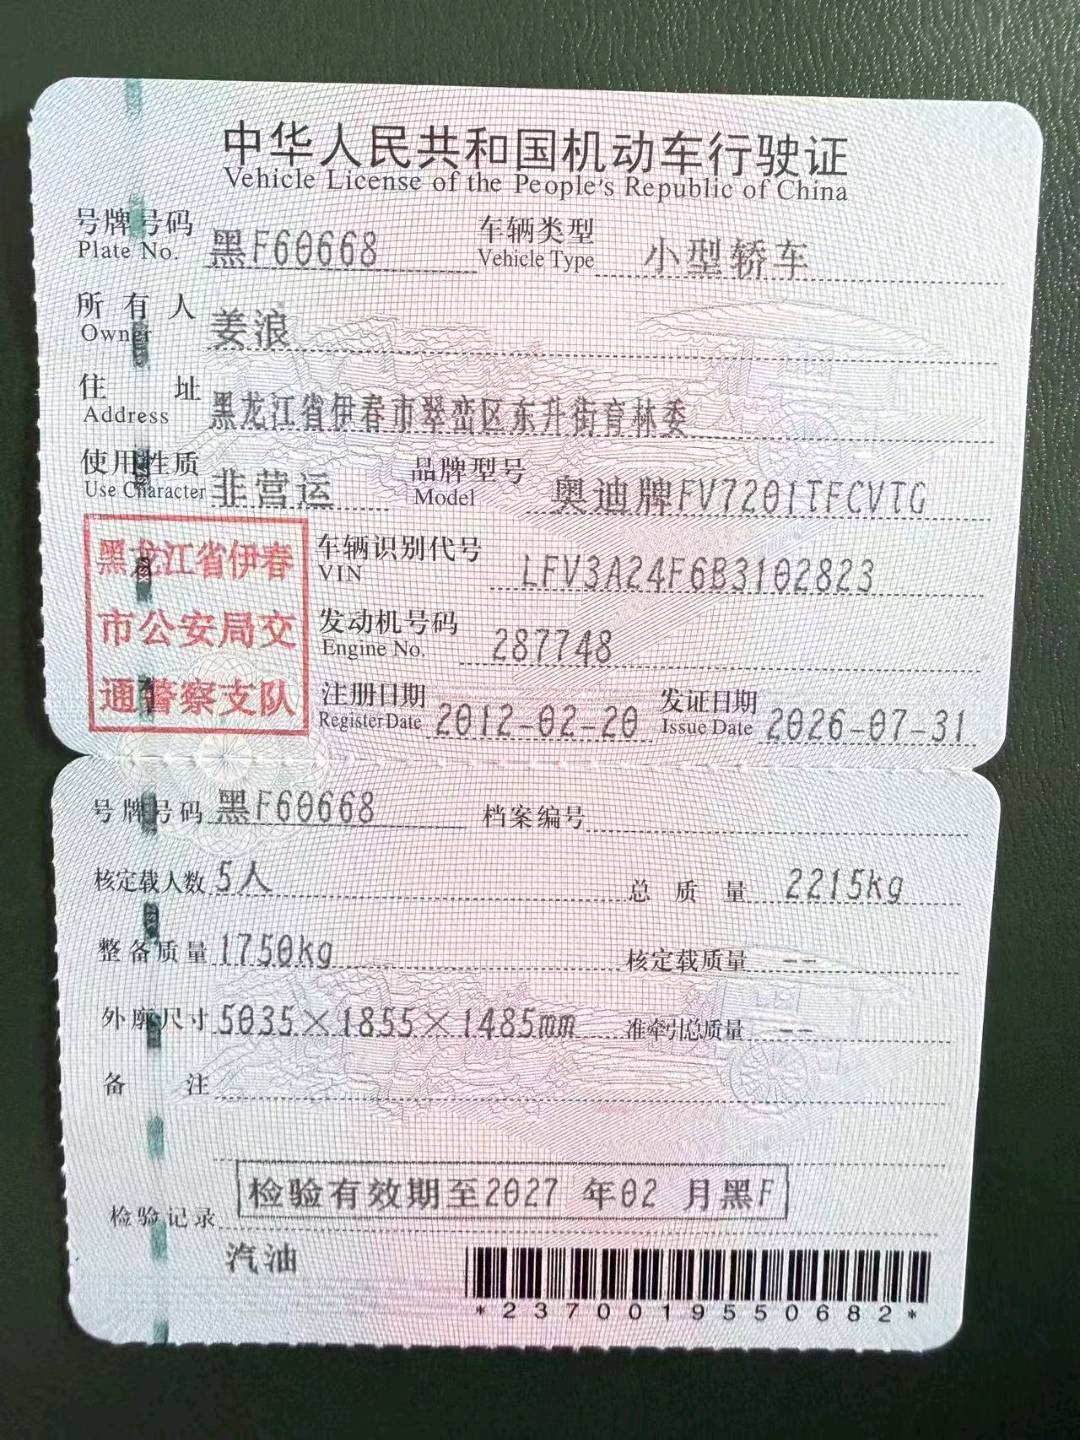 中华人民共和国机动车行驶证
Vehicle License of the People's Republic of China
号牌号码 黑F60668 车辆类型 小型轿车
Plate No. Vehicle Type
所有人 姜浪
Owner
住址 黑龙江省伊春市翠峦区东升街育林委
Address
使用性质 非营运 品牌型号 奥迪牌FV7201TFCVTG
Use Character Model
黑龙江省伊春
市公安局交
通警察支队
车辆识别代号 LFV3A24F6B3102823
VIN
发动机号码 287748
Engine No.
注册日期 2012-02-20 发证日期 2026-07-31
Register Date Issue Date
号牌号码 黑F60668 档案编号
核定载人数 5人 总质量 2215kg
整备质量 1750kg 核定载质量 --
外廓尺寸 5035×1855×1485mm 准牵引总质量 --
备注
检验记录 检验有效期至2027 年02 月黑F
汽油
*2370019550682*